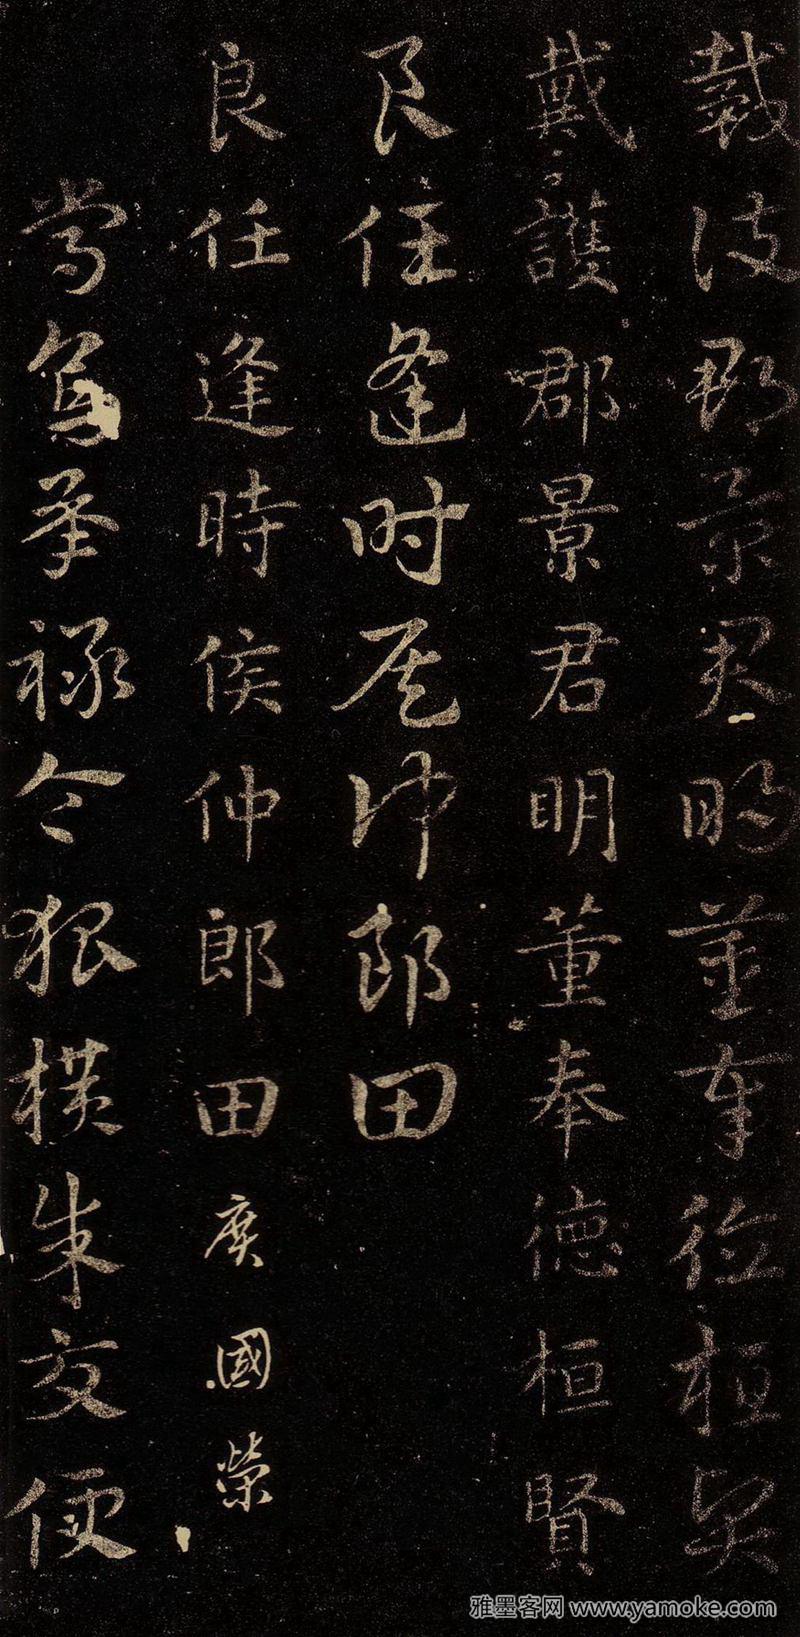 戴護郡景君明董奉德桓賢
戴護郡景君明董奉德桓賢
良任逢时侯仲郎田
良任逢時侯仲郎田廣國榮
常烏承祿令狐橫朱交便
雅墨客网 www.yamoke.com